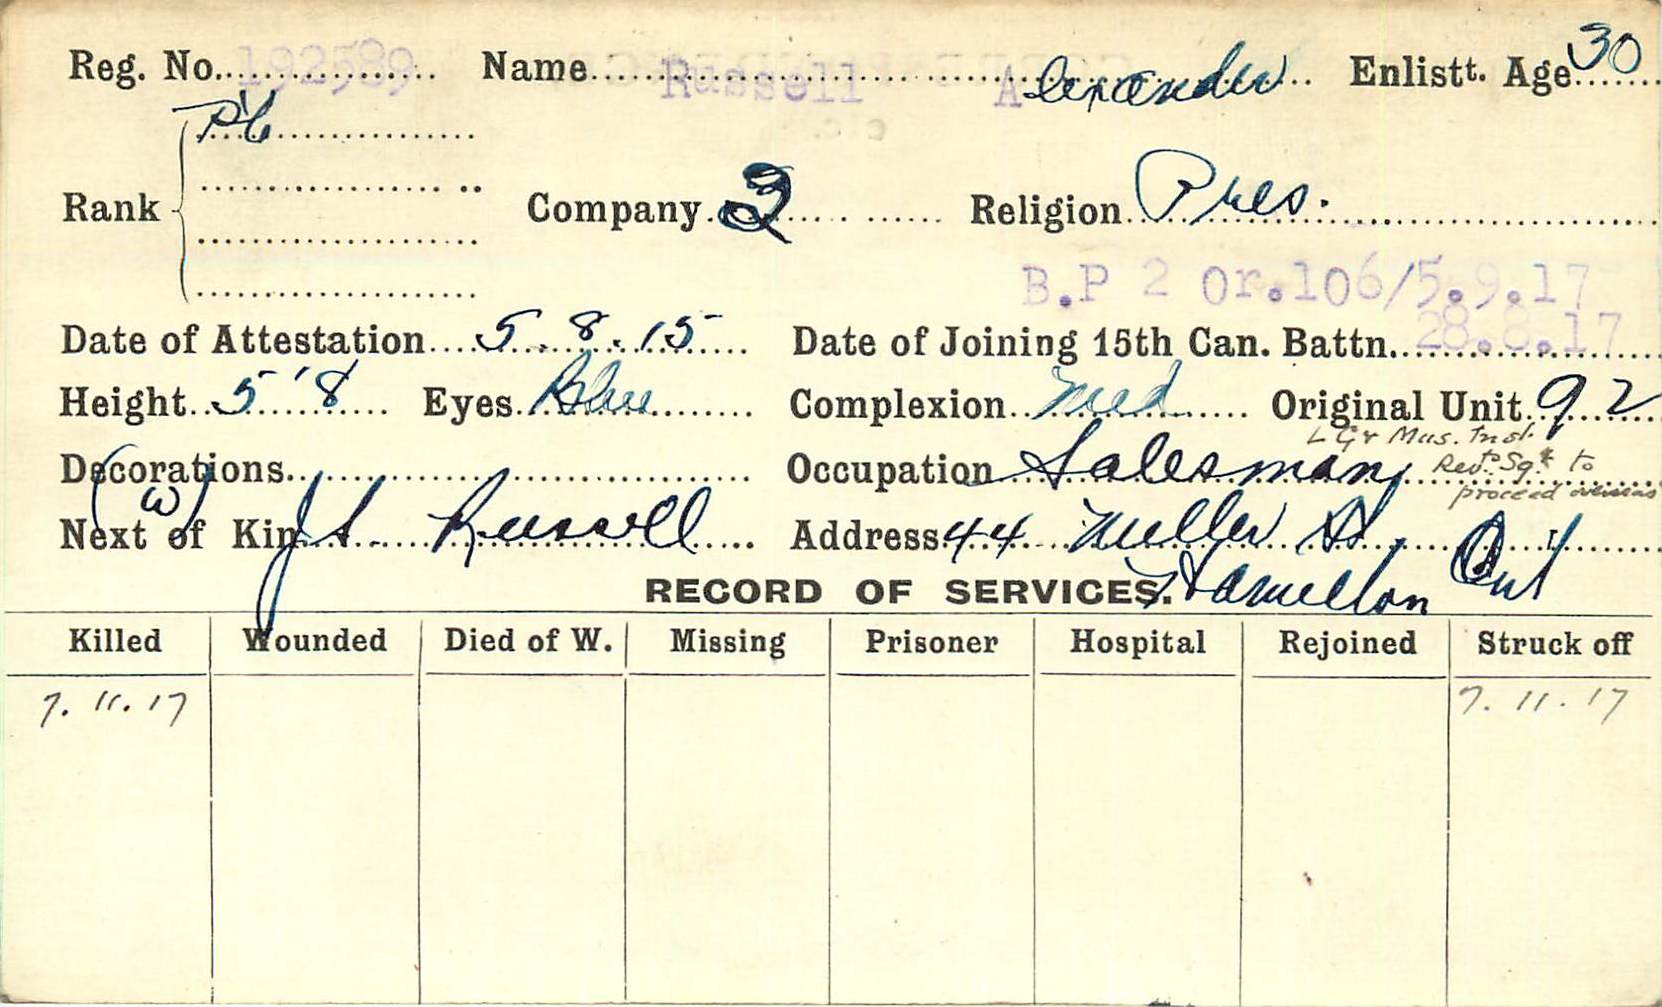 Reg. No. 192589 Name Russell Alexander Enlistt. Age 30
Rank Pte
Company Religion Pres.
B.P 2 Or.106/5.9.17
Date of Attestation 5.8.15 Date of Joining 15th Can. Battn. 28.8.17
Height 5'8 Eyes Blue Complexion Med Original Unit 92
L Gr Mus. Inst.
Decorations Occupation Salesman Rev. Sgt to
proceed overseas
(w)
Next of Kin J S. Russell Address 44 Miller St. Ont
Hamilton
RECORD OF SERVICES.
Killed Wounded Died of W. Missing Prisoner Hospital Rejoined Struck off
7.11.17 7.11.17